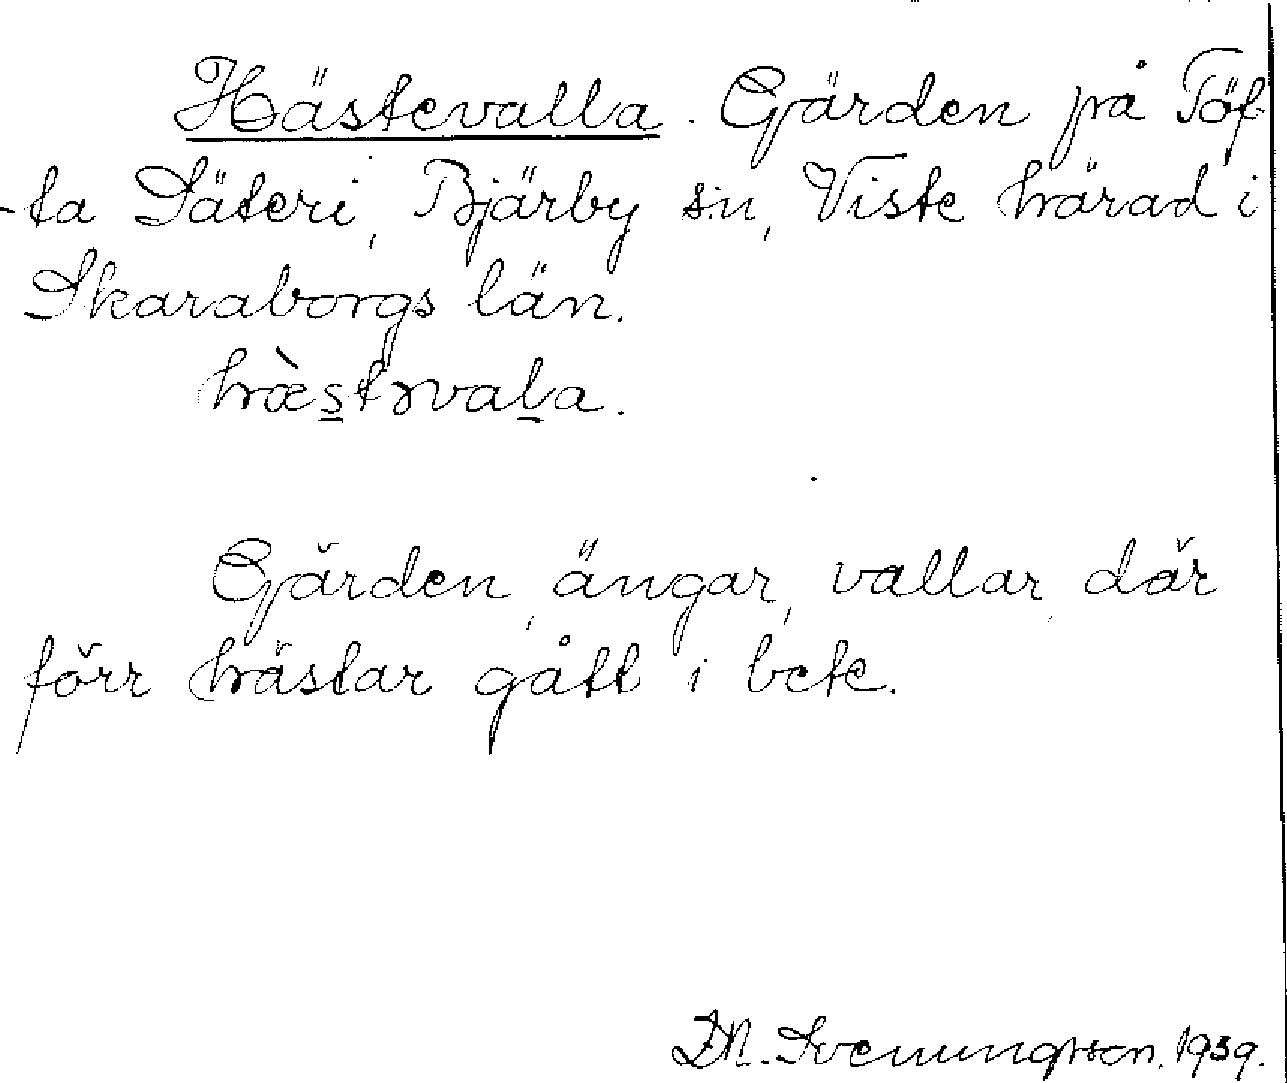 Hästevalla. Gärden på Töf-
-ta Säteri, Bjärby sn, Viste härad i
Skaraborgs län.
hæ̀stəvala.
Gärden, ängar, vallar, där
förr hästar gått i bete.
D.N. Svenungsson. 1939.